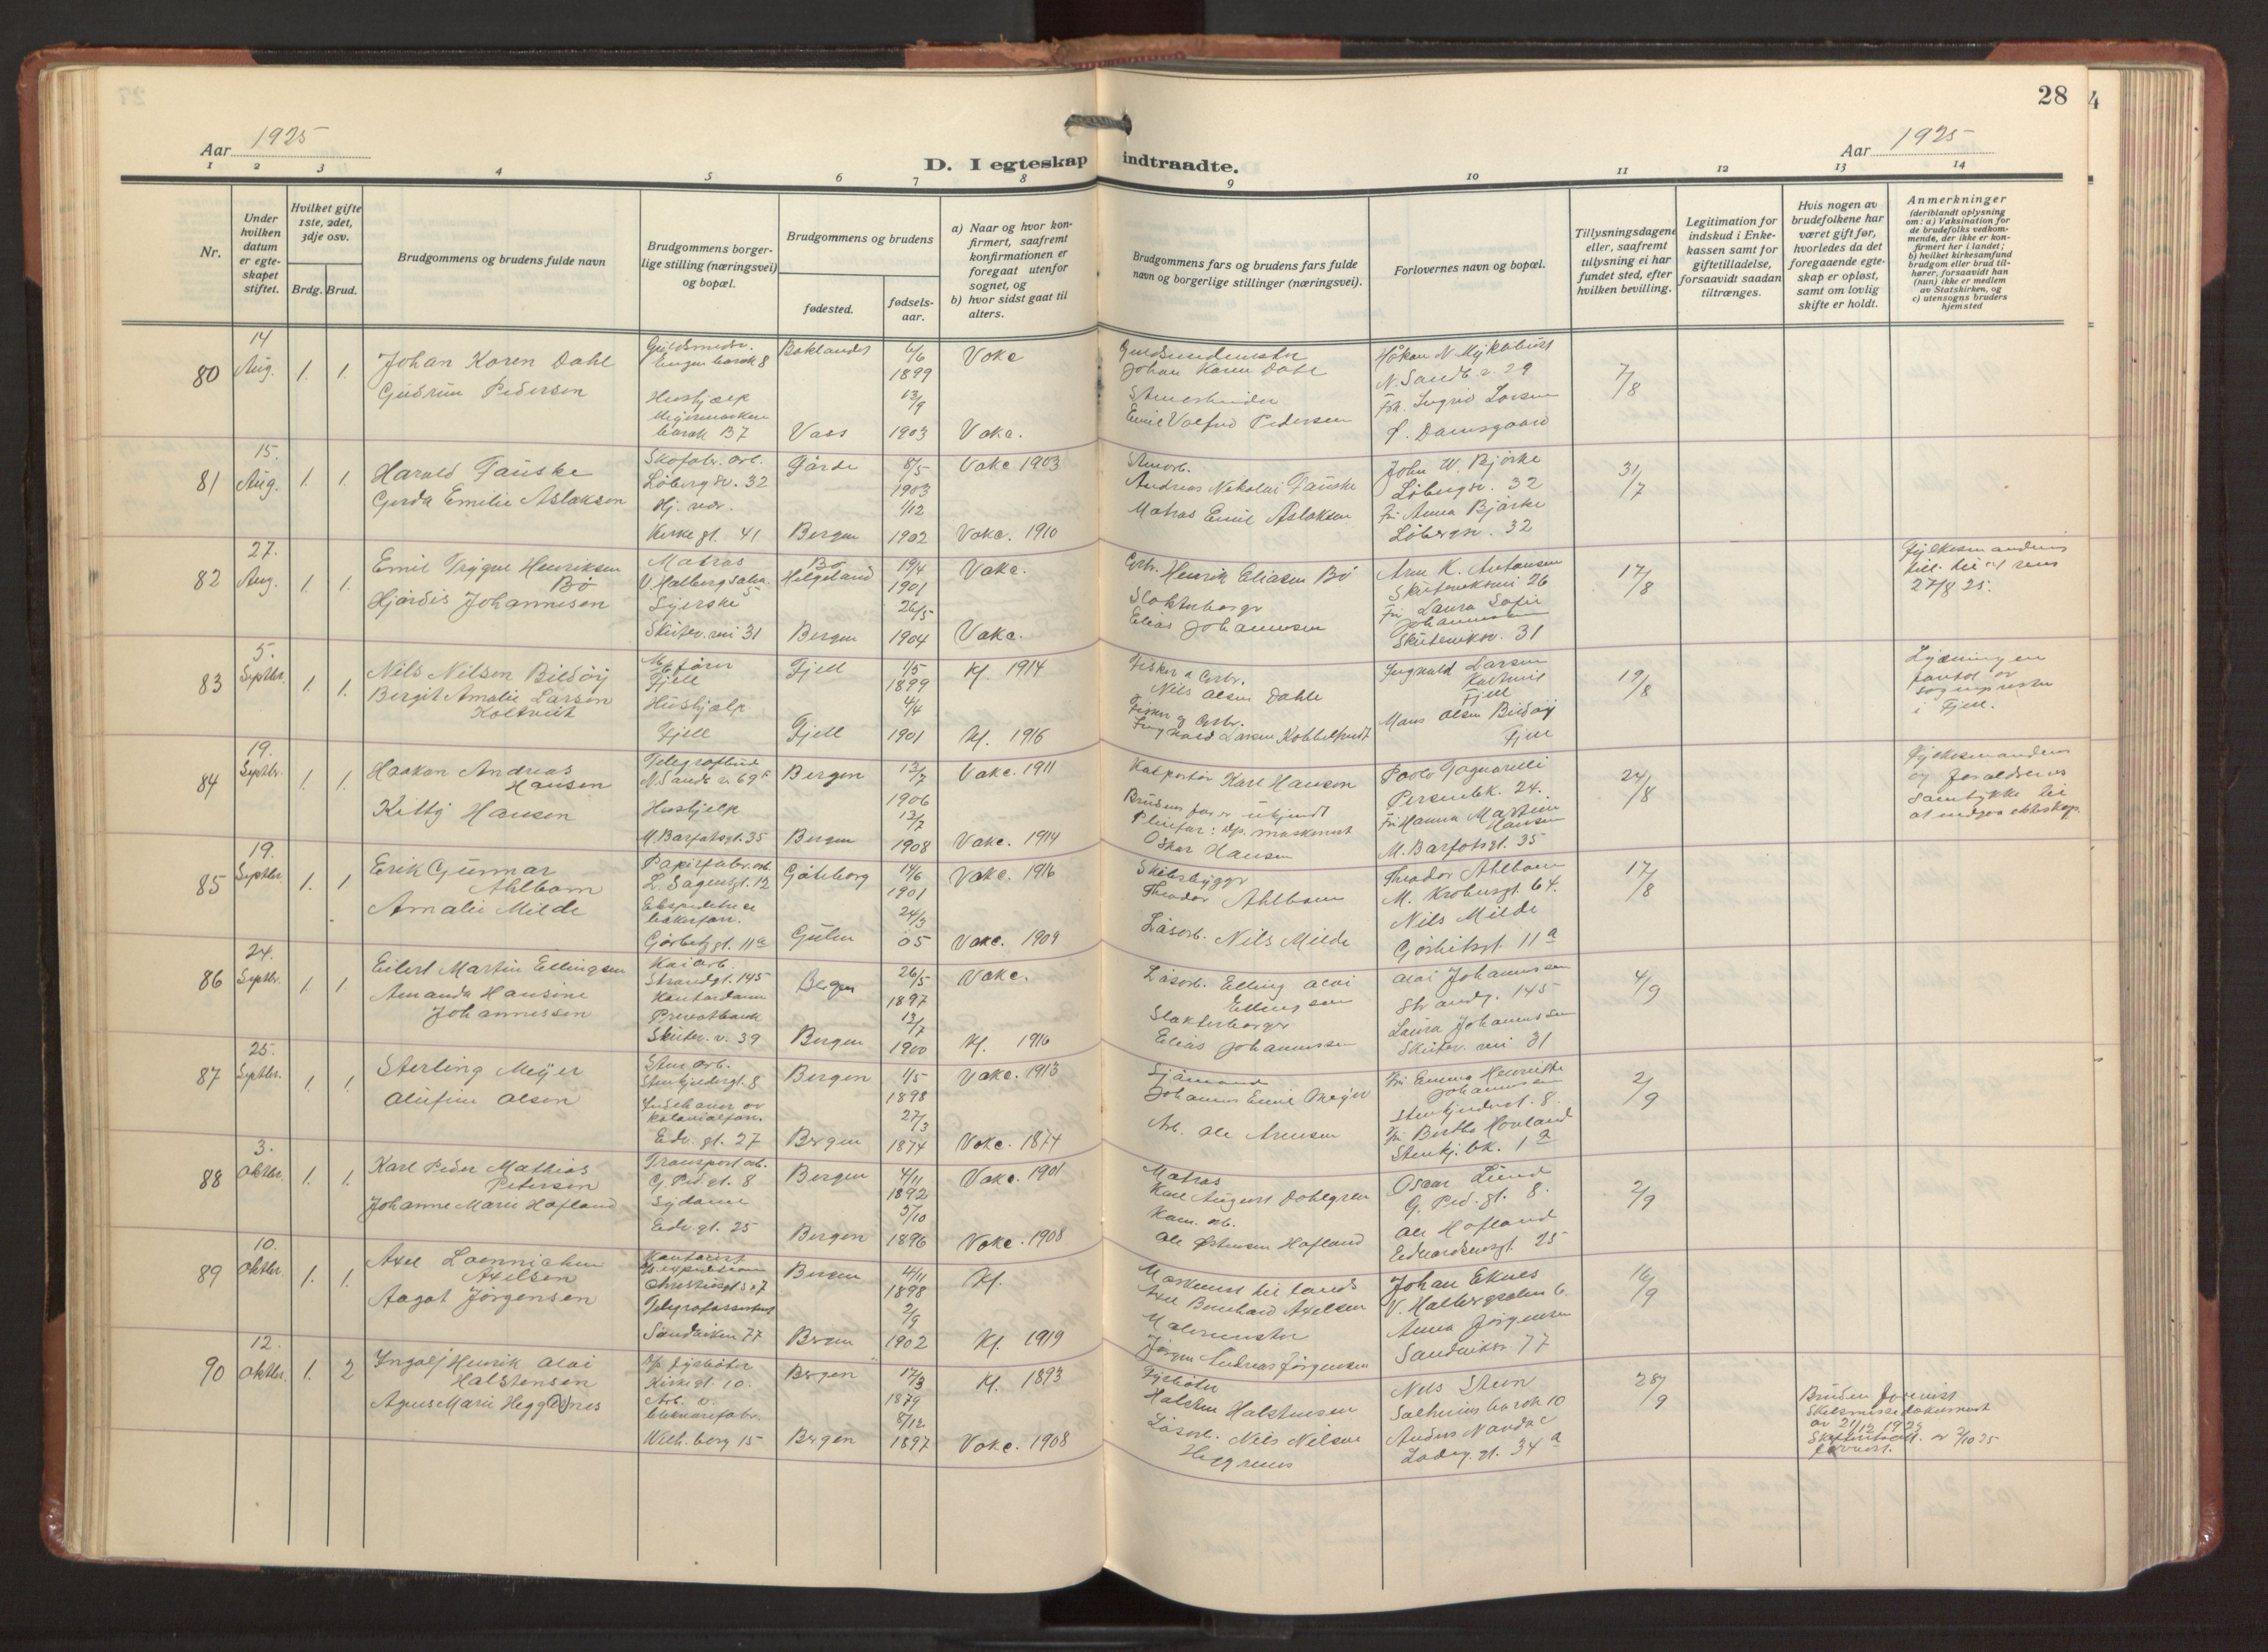 28
Aar 1925
Aar 1925
D. I egteskap indtraadte.
1 2 3 4 5 6 7 8 9 10 11 12 13 14
Nr.
Under hvilken datum er egteskapet stiftet.
Hvilket gifte 1ste, 2det, 3dje osv.
Brdg. Brud.
Brudgommens og brudens fulde navn
Brudgommens borgerlige stilling (næringsvei) og bopæl.
Brudgommens og brudens
fødested.
fødselsaar.
a) Naar og hvor konfirmert, saafremt konfirmationen er foregaat utenfor sognet, og
b) hvor sidst gaat til alters.
Brudgommens fars og brudens fars fulde navn og borgerlige stillinger (næringsvei).
Forlovernes navn og bopæl.
Tillysningsdagene eller, saafremt tillysning ei har fundet sted, efter hvilken bevilling.
Legitimation for indskud i Enkekassen samt for giftetilladelse, forsaavidt saadan tiltrænges.
Hvis nogen av brudefolkene har været gift før, hvorledes da det foregaaende egteskap er opløst, samt om lovlig skifte er holdt.
Anmerkninger
(deriblandt oplysning om: a) Vaksination for de brudefolks vedkommende, der ikke er konfirmert her i landet; b) hvilket kirkesamfund brudgom eller brud tilhører, forsaavidt han (hun) ikke er medlem av Statskirken, og c) utensogns bruders hjemsted
80 14 Aug. 1. 1.
Johan Koren Dahl
Gudrun Pedersen
Engen barak 8
Hushjælp
barak B7
Voss
6/6 1899
13/9 1903
Vake
Vake.
Johan Koren Dahl
Emil Valfrid Pedersen
N. Sandv. v. 29
Frk. Ingrid Larsen
D. Damsgaard
7/8
81 15. Aug. 1. 1.
Harald Fauske
Gerda Emilie Aslaksen
Skofabr. arb.
Løbergsv. 32
Kirkegt. 41
Førde
Bergen
8/5 1903
1/12 1902
Vake 1903
Vake. 1910
Andreas Nikolai Fauske
Matros Emil Aslaksen
John W. Bjørke
Løbergsv. 32
Fru Anna Bjørke
Løbergsv. 32
31/7
82 27. Aug. 1. 1.
Emil Trygve Henriksen
Bø
Hjørdis Johannesen
Matros
V. Holbergsalm. 5
Syerske
Skutev. vei 31
Bø
Helgeland
Bergen
19/4 1901
26/5 1904
Vake.
Vake.
Henrik Eliasen Bø
Elias Johannesen
Arne K. Antonsen
Skuteviksvei 26
Fru Laura Sofie
Johannesen
Skuteviksv. 31
17/8
27/8 25.
83 5. Septbr. 1. 1.
Nils Nilsen Bildøy
Bergit Amalie Larsen
Koltveit
Fjell
Hushjælp
Fjell
Fjell
Fjell
1/5 1899
4/4 1901
Kf. 1914
Kf. 1916
Fisker & Grbr.
Nils Olsen Dahle
Fisker og Grbr.
Ingvald Larsen
Ingvald Larsen
Koltveit
Fjell
Mons Olsen Bildøy
Fjell
19/8
Lysningen
sognepresten
i Fjell.
84 19. Septbr. 1. 1.
Haakon Andreas
Hansen
Kitty Hansen
Telegrafbud
N. Sandv. v. 69
Hushjelp
M. Barfotsgt. 35
Bergen
Bergen
13/7 1906
12/7 1908
Vake. 1911
Vake. 1914
Kolportør Karl Hansen
Brudens far er ukjendt
Pleiefar: dp. maskinist
Oskar Hansen
Paolo Pagnarelli
Persenbk. 24.
Fru Hanna Martine
Hansen
M. Barfotsgt. 35
24/8
Fylkesmandens
og forældrenes
samtykke til
at indgaa ekteskap.
85 19. Septbr. 1. 1
Erik Gunnar
Ahlbom
Amalie Milde
Papirfabr. arb.
L. Sagensgt. 12
Ekspeditrise
Gørbitzgt. 11a
Gøteborg
Gulen
14/6 1901
24/3 05
Vake. 1916
Vake. 1909
Skibsbygger
Theodor Ahlbom
Løsarb. Nils Milde
Theodor Ahlbom
M. Krohnsgt. 64.
Nils Milde
Gørbitzgt. 11a
17/8
86 24. Septbr. 1. 1.
Eilert Martin Ellingsen
Amanda Hansine
Johannessen
Kaiarb.
Strandgt. 145
Kontordame
Privatbank
Skutev. v. 39
Bergen
Bergen
26/5 1897
12/7 1900
Vake.
Kf. 1916
Løsarb. Elling Olai
Ellingsen
Slakterborger
Elias Johannessen
Olai Johannessen
Strandg. 145
Laura Johannessen
Skutev. vei 31
4/9
87 25. Septbr. 1. 1.
Sterling Meÿer
Olufine Olsen
Sten arb.
Stenkjeldergt. 8
Indehaver av
kolonialforr.
Edv. gt. 27
Bergen
Bergen
1/5 1898
27/3 1874
Vake. 1913
Vake. 1874
Sjømand
Johannes Emil Meyer
Arb. Ole Arnesen
Fru Emma Henriette
Johannessen
Stenkjeldergt. 8.
Fru Bertha Hovland
Stenkj. bk. 1a
2/9
88 3. Oktbr. 1. 1.
Karl Peder Mathias
Petersen
Johanne Marie Hofland
Transport arb.
G. Ped. gt. 8
Sydame
Edv. gt. 25
Bergen
Bergen
4/11 1892
5/10 1896
Vake. 1901
Vake. 1908
Matros
Karl August Dahlgren
Kom. arb.
Ole Østensen Hofland
Oscar Lund
G. Ped. gt. 8.
Ole Hofland
Edvardsensgt. 25
2/9
89 10. Oktbr. 1. 1.
Axel Loennichen
Axelsen
Aagot Jørgensen
Kontorist
Christiesgt. 5-7
Telegrafassistent
Sandviken 77
Bergen
Bergen
4/11 1898
2/9 1902
Kf.
Kf. 1919
Maskinist til lands
Axel Bernhard Axelsen
Malermester
Jørgen Andreas Jørgensen
Johan Eknes
V. Holbergsalm 6.
Anna Jørgensen
Sandviksv. 77
16/9
90 12. Oktbr. 1. 2
Ingolf Henrik Olai
Halstensen
Agnes Marie Heggernes
d/p fyrbøter
Kirkegt. 10.
Arb. v.
Wilh. borg 15
Bergen
Bergen
17/3 1879
8/12 1897
Kf. 1893
Vake. 1908
Fyrbøter
Halsten Halstensen
Løsarb. Nils Nilsen
Heggernes
Nils Steen
Solheim barak 10
Anders Nondal
Lodeg. gt. 34a
28/9
Bruden forevist
Skilsmissedokument
av 21/12 1923